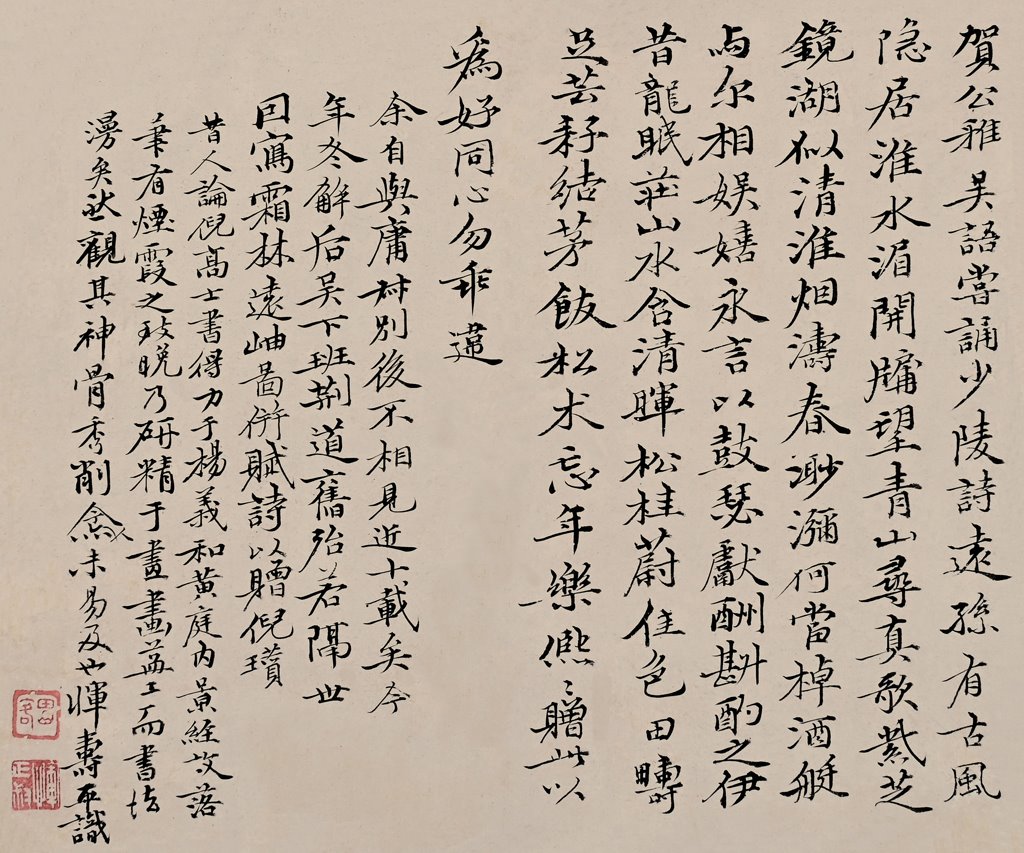 賀公雅吳語嘗誦少陵詩遠孫有古風
隐居淮水湄開牖望青山尋真歌紫芝
鏡湖似清淮烟濤春渺瀰何當棹酒艇
与尔相娱嬉永言以鼓瑟獻酬斟酌之伊
昔龍眠莊山水含清暉松桂蔚佳色田疇
足芸耔结茅飯松术忘年樂熙〻贈此以
為好同心勿乖違
余自與庸叔別後不相見近十載矣今
年冬解后吳下班荆道舊殆若隔世
回寫霜林遠岫啚併賦詩以贈倪瓚
昔人論倪高士書得力于楊義和黄庭内景經故落
筆有煙霞之致晚乃研精于畫畫益工而書法
漫矣狀觀其神骨秀削僉未易及也惲壽平識